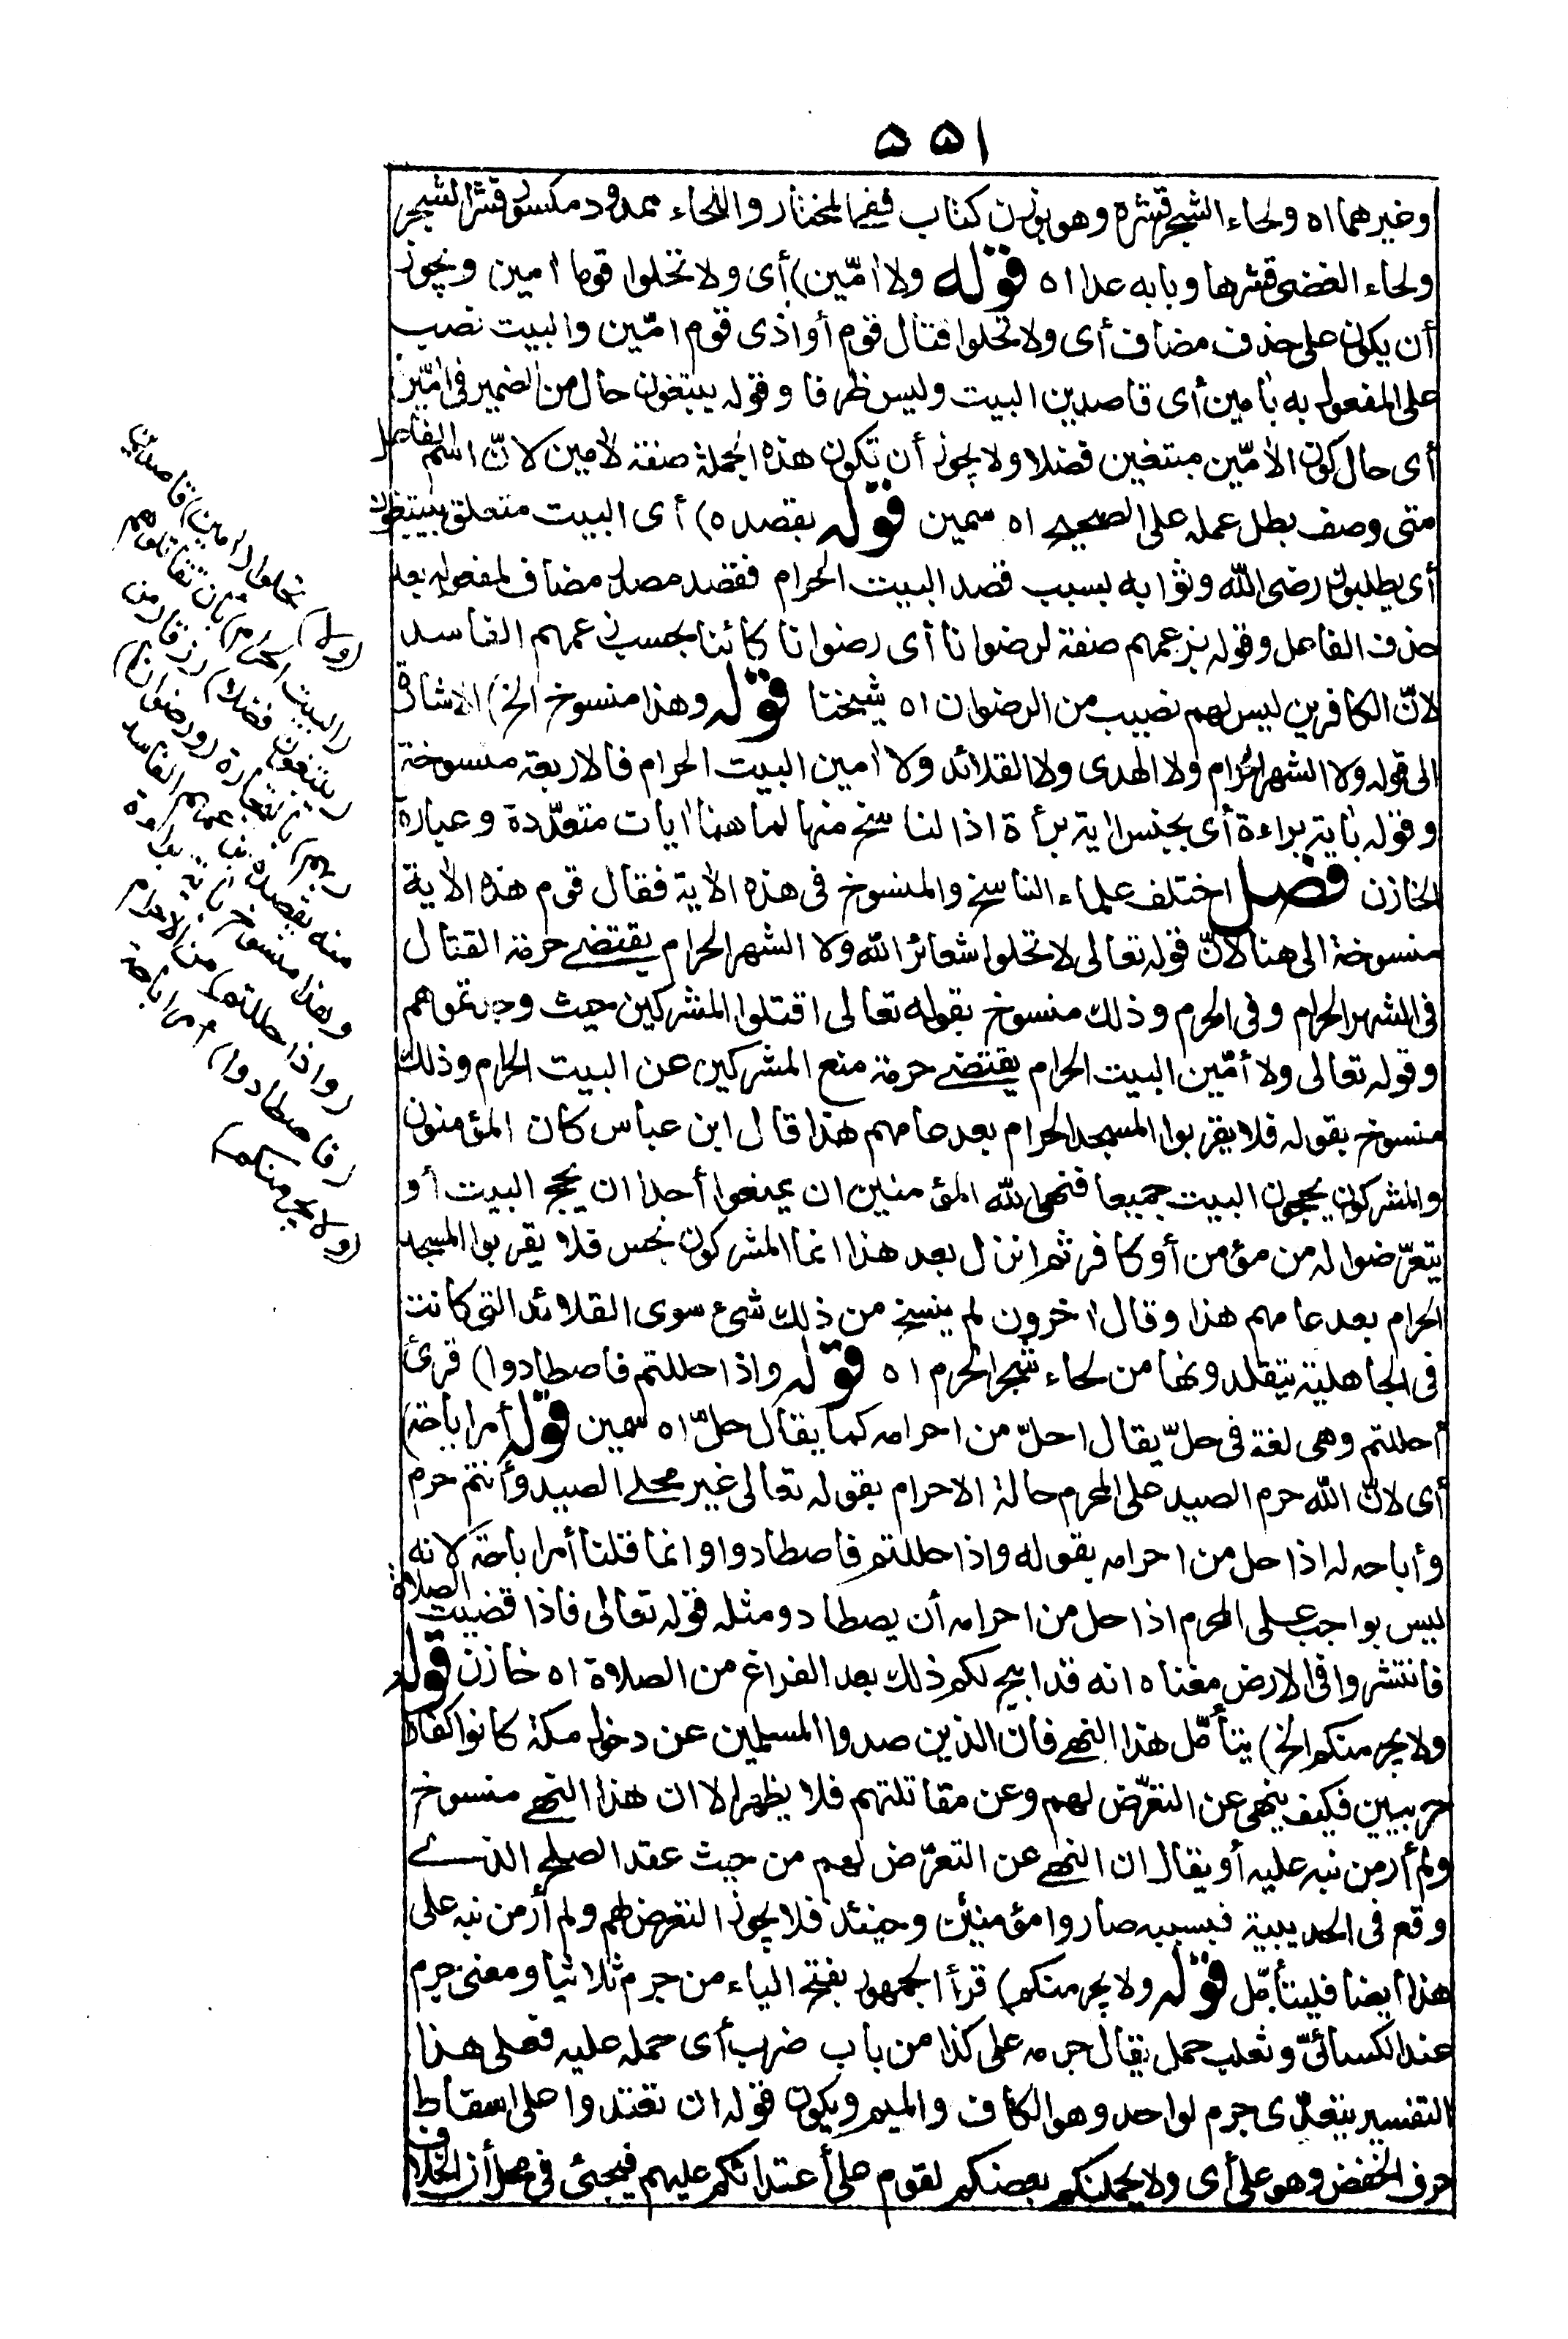 ٥٥١
وغيرهما اه ولحاء الشجر قشره وهو بوزن كتاب ففي المختار واللحاء ممدود مكسور قشر الشجر
ولحاء الغصن قشرها وبابه عدا اه قوله ولا آمّين) أى ولا تحلوا قوما آمين ويجوز
أن يكون على حذف مضاف أى ولا تحلوا قتال قوم أو اذى قوم آمّين والبيت نصب
على المفعول به بآمين أى قاصدين البيت وليس ظرفا وقوله يبتغون حال من الضمير فى آمّين
أى حال كون الآمّين مبتغين فضلا ولا يجوز أن تكون هذه الجملة صفة لآمين لانّ اسم الفاعل
متى وصف بطل عمله على الصحيح اه سمين قوله بقصده) أى البيت متعلق بيبتغون
أى يطلبون رضى الله وثوابه بسبب قصد البيت الحرام فقصد مصدر مضاف لمفعوله بعد
حذف الفاعل وقوله بزعمهم صفة لرضوانا أى رضوانا كائنا بحسب زعمهم الفاسد
لانّ الكافرين ليس لهم نصيب من الرضوان اه شيخنا قوله وهذا منسوخ الخ) الاشارة
الى قوله ولا الشهر الحرام ولا الهدى ولا القلائد ولا آمين البيت الحرام فالاربعة منسوخة
وقوله بآية براءة أى بجنس آية برأة اذ الناسخ منها لما هنا آيات متعدّدة وعبارة
الخازن فصل اختلف علماء الناسخ والمنسوخ فى هذه الآية فقال قوم هذه الآية
منسوخة الى هنا لانّ قوله تعالى لا تحلوا شعائر الله ولا الشهر الحرام يقتضى حرمة القتال
فى الشهر الحرام وفى الحرم وذلك منسوخ بقوله تعالى اقتلوا المشركين حيث وجدتموهم
وقوله تعالى ولا أمّين البيت الحرام يقتضى حرمة منع المشركين عن البيت الحرام وذلك
منسوخ بقوله فلا يقربوا المسجد الحرام بعد عامهم هذا قال ابن عباس كان المؤمنون
والمشركون يحجون البيت جميعا فنهى الله المؤمنين ان يمنعوا أحدا ان يحج البيت أو
يتعرّضوا له من مؤمن أو كافر ثم انزل بعد هذا انما المشركون نجس فلا يقربوا المسجد
الحرام بعد عامهم هذا وقال آخرون لم ينسخ من ذلك شىء سوى القلائد التى كانت
فى الجاهلية يتقلدونها من لحاء شجر الحرم اه قوله واذا حللتم فاصطادوا) قرئ
أحللتم وهى لغة فى حلّ يقال احلّ من احرامه كما يقال حلّ اه سمين قوله أمر اباحة)
أى لانّ الله حرم الصيد على المحرم حالة الاحرام بقوله تعالى غير محلى الصيد وأنتم حرم
وأباحه له اذا حل من احرامه بقوله واذا حللتم فاصطادوا وانما قلنا أمر اباحة لانه
ليس بواجب على المحرم اذا حل من احرامه أن يصطاد ومثله قوله تعالى فاذا قضيت الصلاة
فانتشروا فى الارض معناه انه قد ابيح لكم ذلك بعد الفراغ من الصلاة اه خازن قوله
ولا يجرمنكم الخ) يتأمّل هذا النهى فان الذين صدوا المسلمين عن دخول مكة كانوا كفارا
حربيين فكيف ينهى عن التعرّض لهم وعن مقاتلتهم فلا يظهر الا ان هذا النهى منسوخ
ولم أر من نبه عليه أو يقال ان النهى عن التعرّض لهم من حيث عقد الصلح الذى
وقع فى الحديبية فبسببه صاروا مؤمنين وحينئذ فلا يجوز التعرض لهم ولم أر من نبه على
هذا أيضا فليتأمّل قوله ولا يجرمنكم) قرأ الجمهور بفتح الياء من جرم ثلاثيا ومعنى جرم
عند الكسائىّ وثعلب حمل يقال جرمه على كذا من باب ضرب أى حمله عليه فعلى هذا
التفسير يتعدّى جرم لواحد وهو الكاف والميم ويكون قوله ان تعتدوا على اسقاط
حرف الخفض وهو على أى ولا يحملنكم بعضكم لقوم على أعتدائكم عليهم فيجئ فى محل أن الخلاف
(ولا) تحلوا (آمين) قاصدين
(البيت الحرام) بان تقاتلوهم
(يبتغون فضلا) رزقا من
ربهم) بالتجارة (ورضوانا)
منه بقصده بزعمهم الفاسد
وهذا منسوخ بآية براءة
(واذا حللتم) من الاحرام
(فاصطادوا) أمر اباحة
(ولا يجرمنكم)